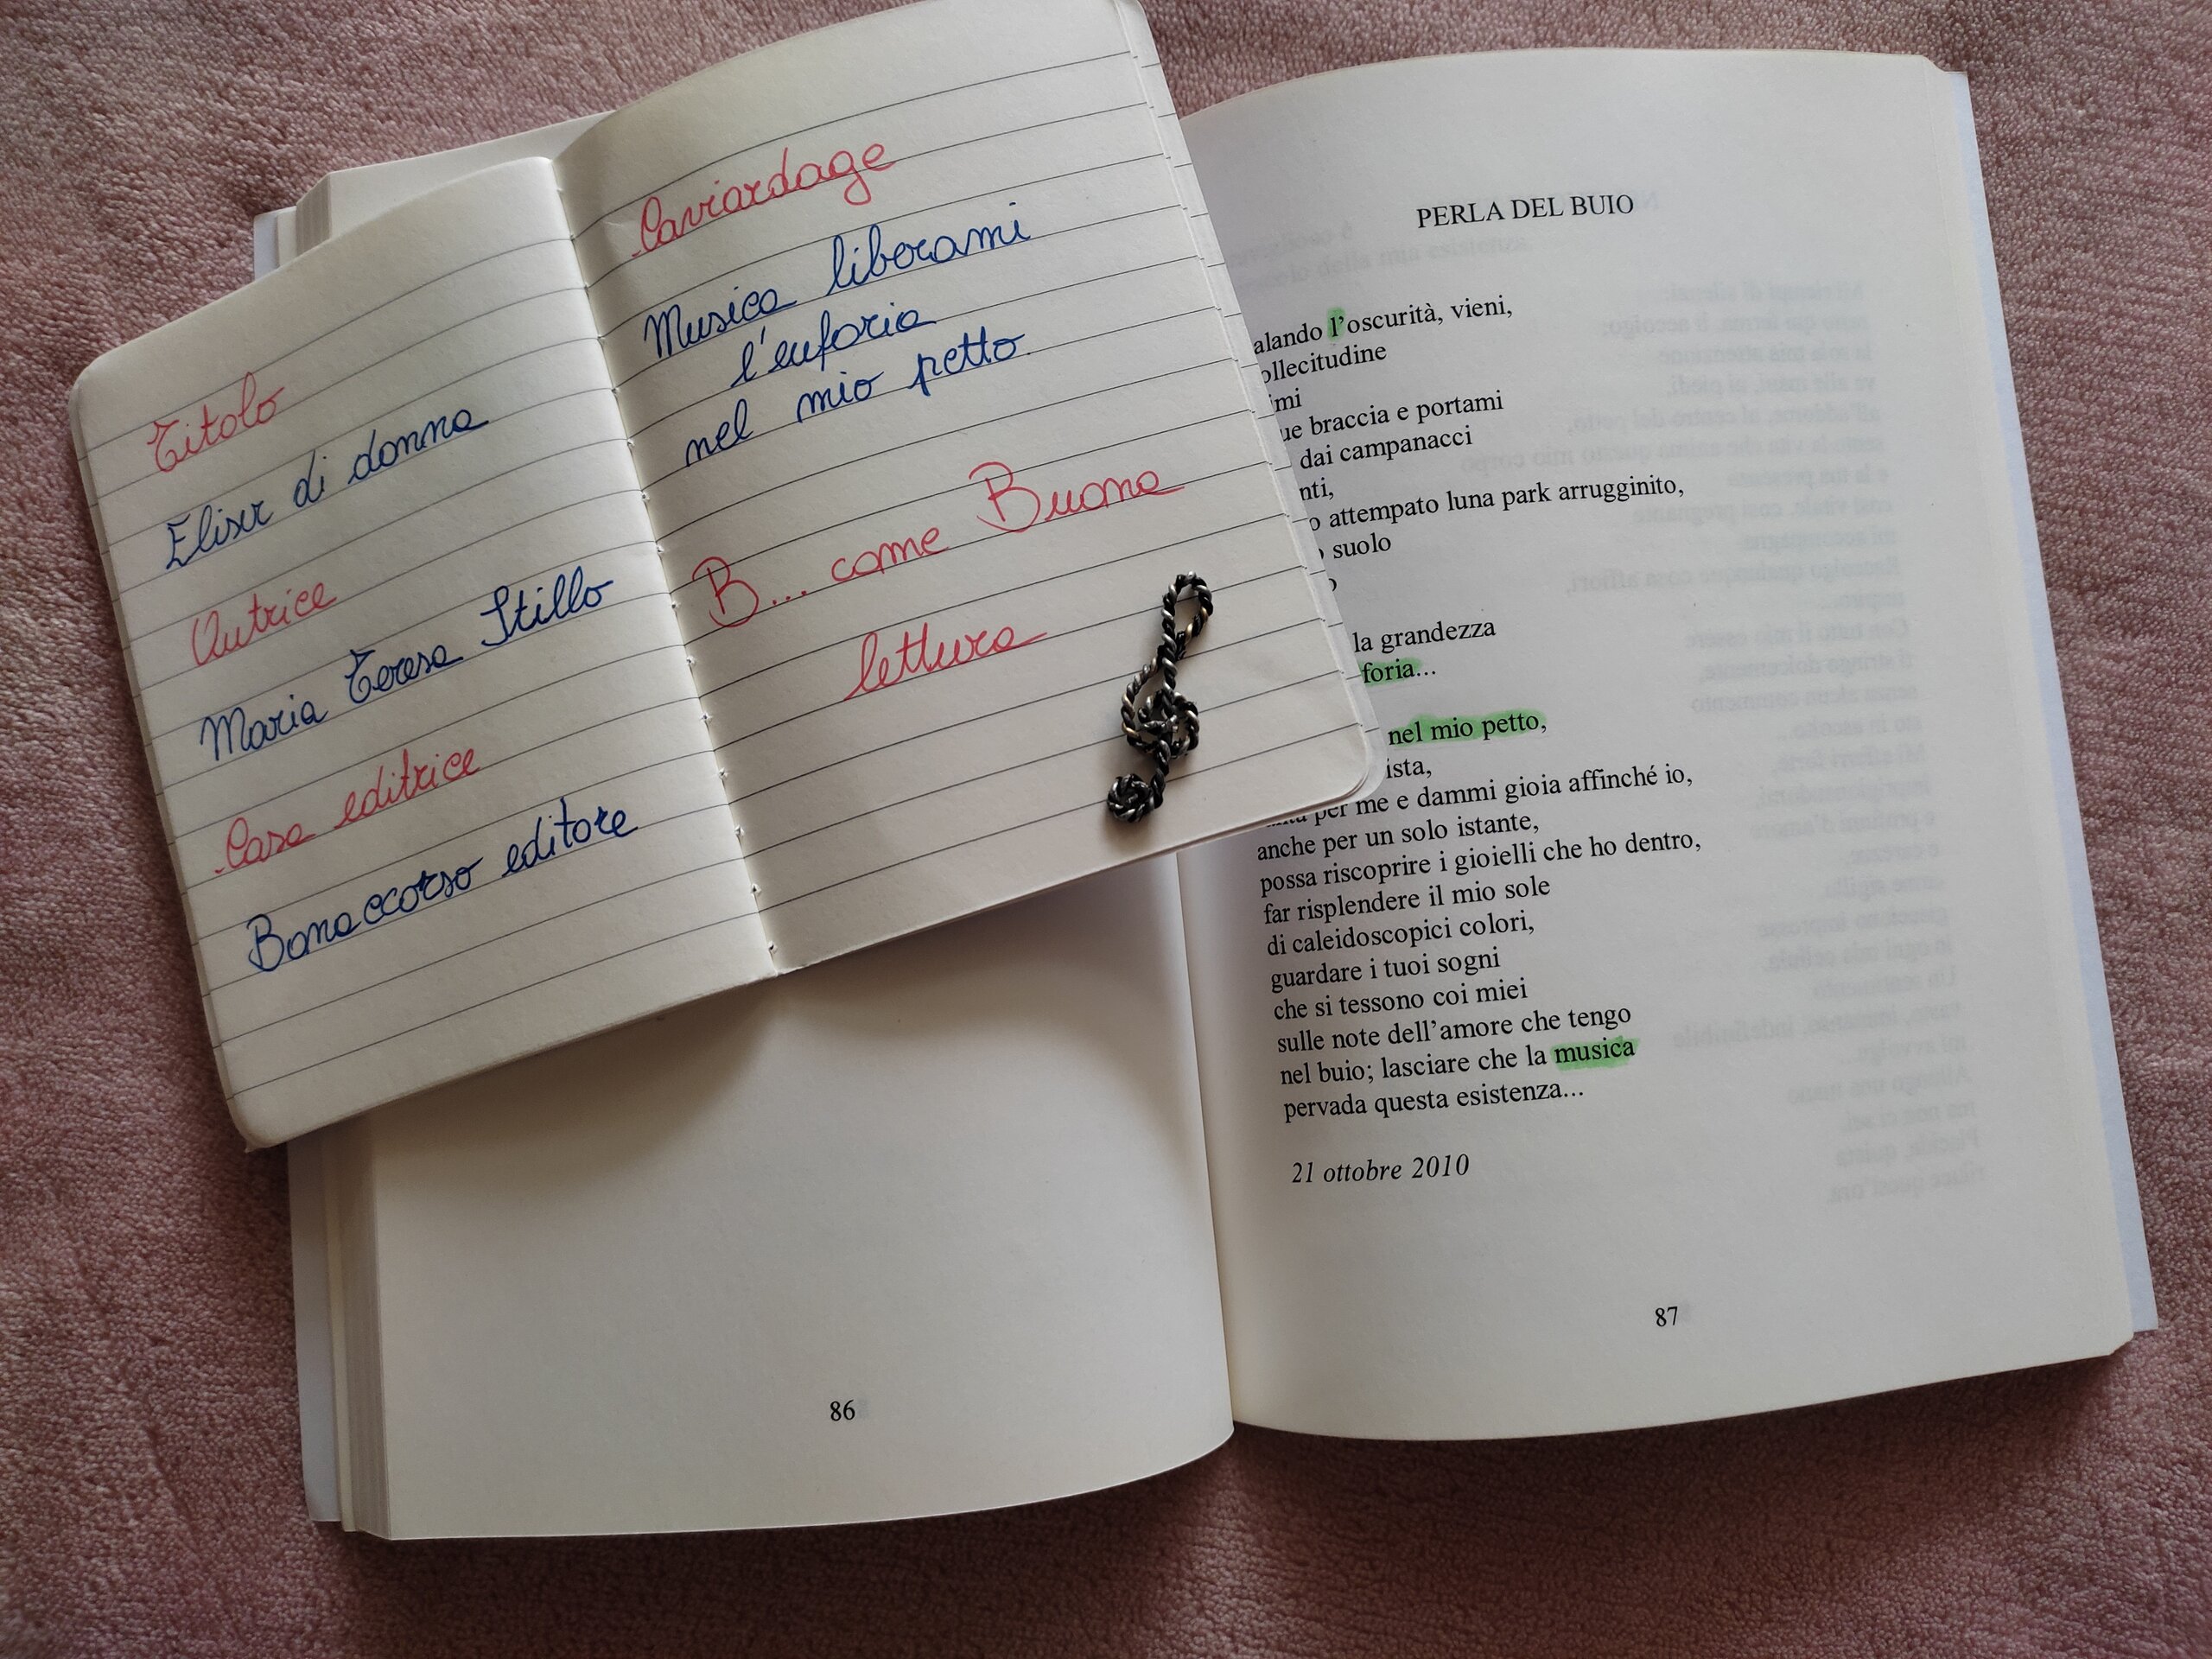 Titolo
Elisir di donna
Autrice
Maria Teresa Stillo
Casa editrice
Bonaccorso editore
Caviardage
Musica liberami
l'euforia
nel mio petto.
B... come Buona
lettura
PERLA DEL BUIO
l'oscurità, vieni,
braccia e portami
dai campanacci
attempato luna park arrugginito,
suolo
la grandezza
foria...
nel mio petto,
per me e dammi gioia affinché io,
anche per un solo istante,
possa riscoprire i gioielli che ho dentro,
far risplendere il mio sole
di caleidoscopici colori,
guardare i tuoi sogni
che si tessono coi miei
sulle note dell'amore che tengo
nel buio; lasciare che la musica
pervada questa esistenza...
21 ottobre 2010
87
86